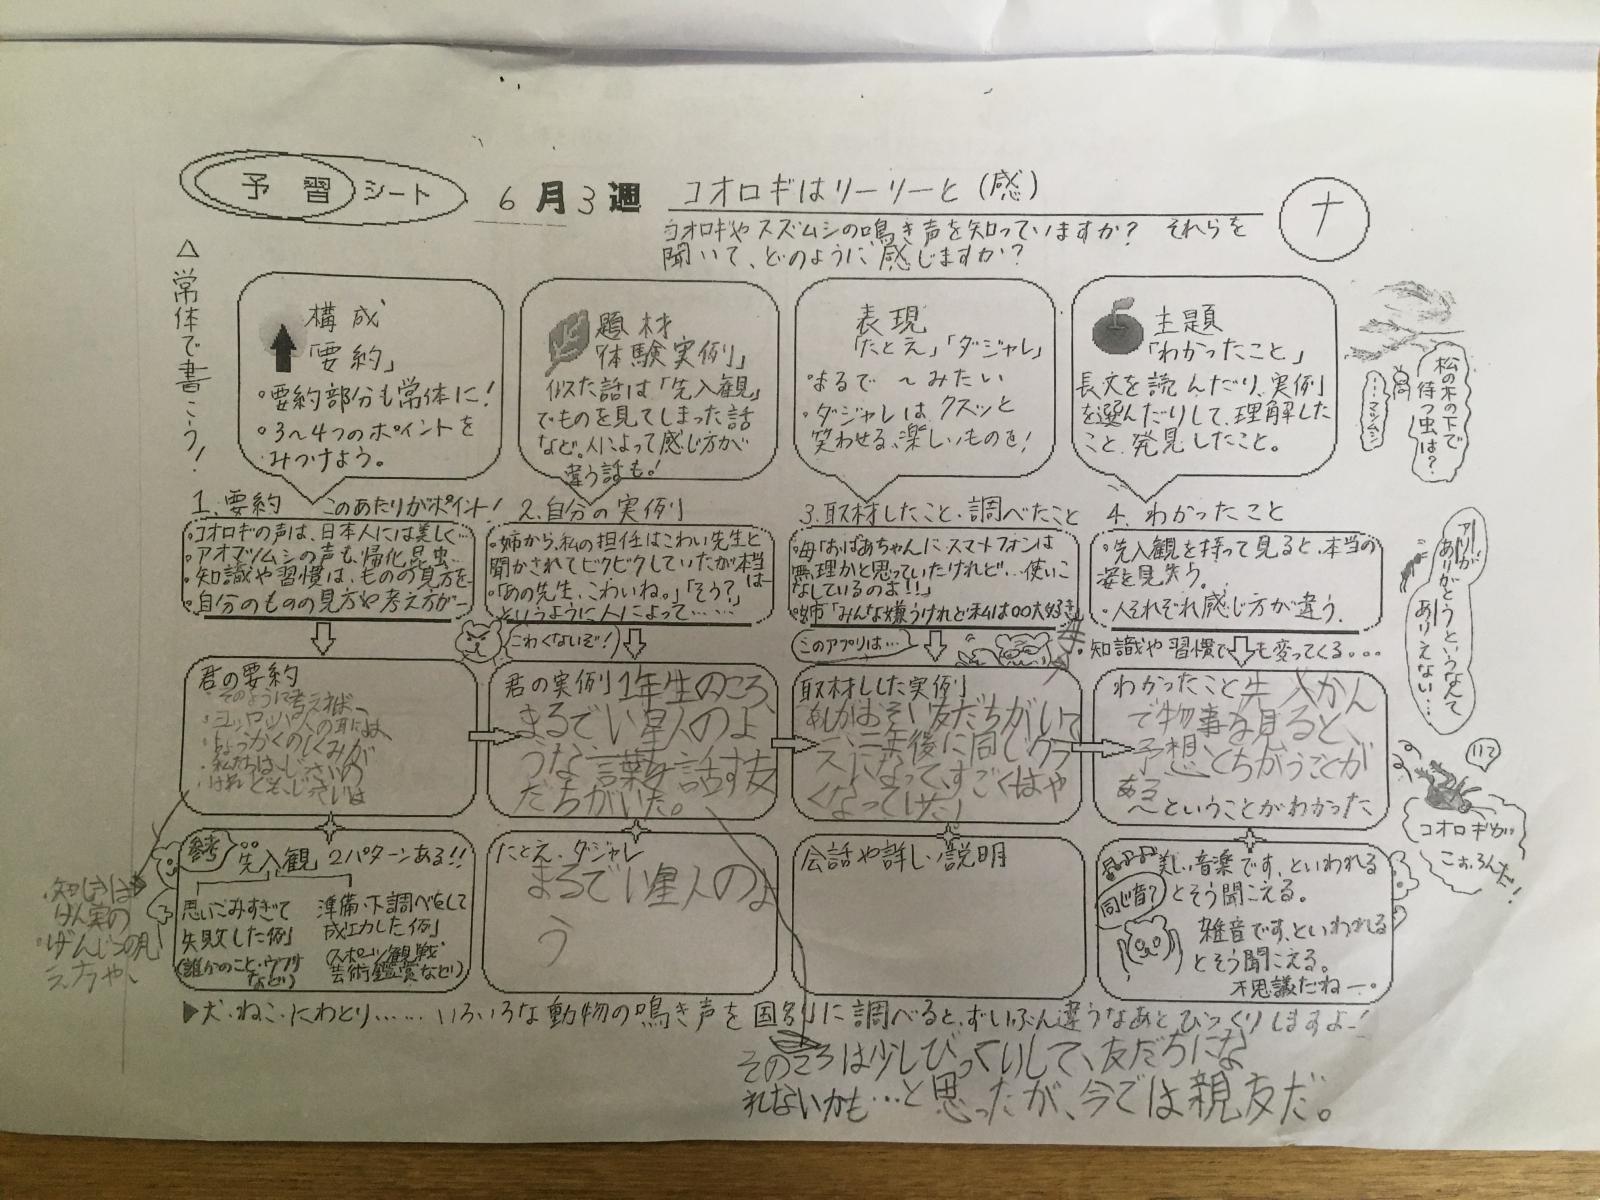 予習シート 6月3週 コオロギはリーリーと(感) ナ
コオロギやスズムシの鳴き声を知っていますか? それらを
聞いて、どのように感じますか?
△常体で書こう!
構成
「要約」
・要約部分も常体に!
・3〜4つのポイントを
みつけよう。
題材
「体験実例」
似た話は「先入観」
でものを見てしまった話
など。人によって感じ方が
違う話も!
表現
「たとえ」「ダジャレ」
・まるで〜みたい
・ダジャレは、クスッと
笑わせる、楽しいものを!
主題
「わかったこと」
長文を読んだり、実例
を選んだりして、理解した
こと、発見したこと。
松の木の下で
待つ虫は?
…マツムシ
1.要約 このあたりがポイント!
・コオロギの声は、日本人には美しく…
・アオマツムシの声も、帰化昆虫…
・知識や習慣は、ものの見方を…
・自分のものの見方や考え方が…
2.自分の実例
・姉から、私の担任はこわい先生と
聞かされてビクビクしていたが本当は…
・「あの先生、こわいね。」「そう?」
というように人によって……
こわくないぞ!
3.取材したこと・調べたこと
・母「おばあちゃんに、スマートフォンは
無理かと思っていたけれど…使いこ
なしているのよ!!」
・姉「みんな嫌うけれど私は○○大好き
このアプリは…
4.わかったこと
・先入観を持って見ると、本当の
姿を見失う。
・人それぞれ感じ方が違う。
・知識や習慣でも変ってくる...
アリが
ありがとうというなんて
ありえない…
君の要約
・そのように考えれば、
・ヨーロッパ人の耳には、
・ちょうかくのしくみが
・私たちは、じっさいの
・けれども、じっさいは
・知しきは
げん実の
・げんじつの見
え方や、
君の実例 1年生のころ、
まるでい星人のよ
うな言葉を話す友
だちがいた。
取材した実例
あしがおそい友だちがいて
二年後に同じクラ
スになって、すごくはや
くなっていた」
わかったこと 先入かん
で物事を見ると、
予想とちがうことが
ある
〜ということがわかった
コオロギが
こおろんだ!
参考 先入観 2パターンある!!
思いこみすぎて
失敗した例
(誰かのこと・ウワサ
など)
準備・下調べをして
成功した例
(スポーツ観戦
芸術鑑賞など)
たとえ・ダジャレ
まるでい星人のよ
う
会話や詳しい説明
同じ音?
美しい音楽です、といわれる
とそう聞こえる。
雑音です、といわれる
とそう聞こえる。
不思議だねー。
▶犬・ねこ・にわとり……いろいろな動物の鳴き声を国別に調べると、ずいぶん違うなあとびっくりしますよ!
そのころは少しびっくりして、友だちにな
れないかも…と思ったが、今では親友だ。